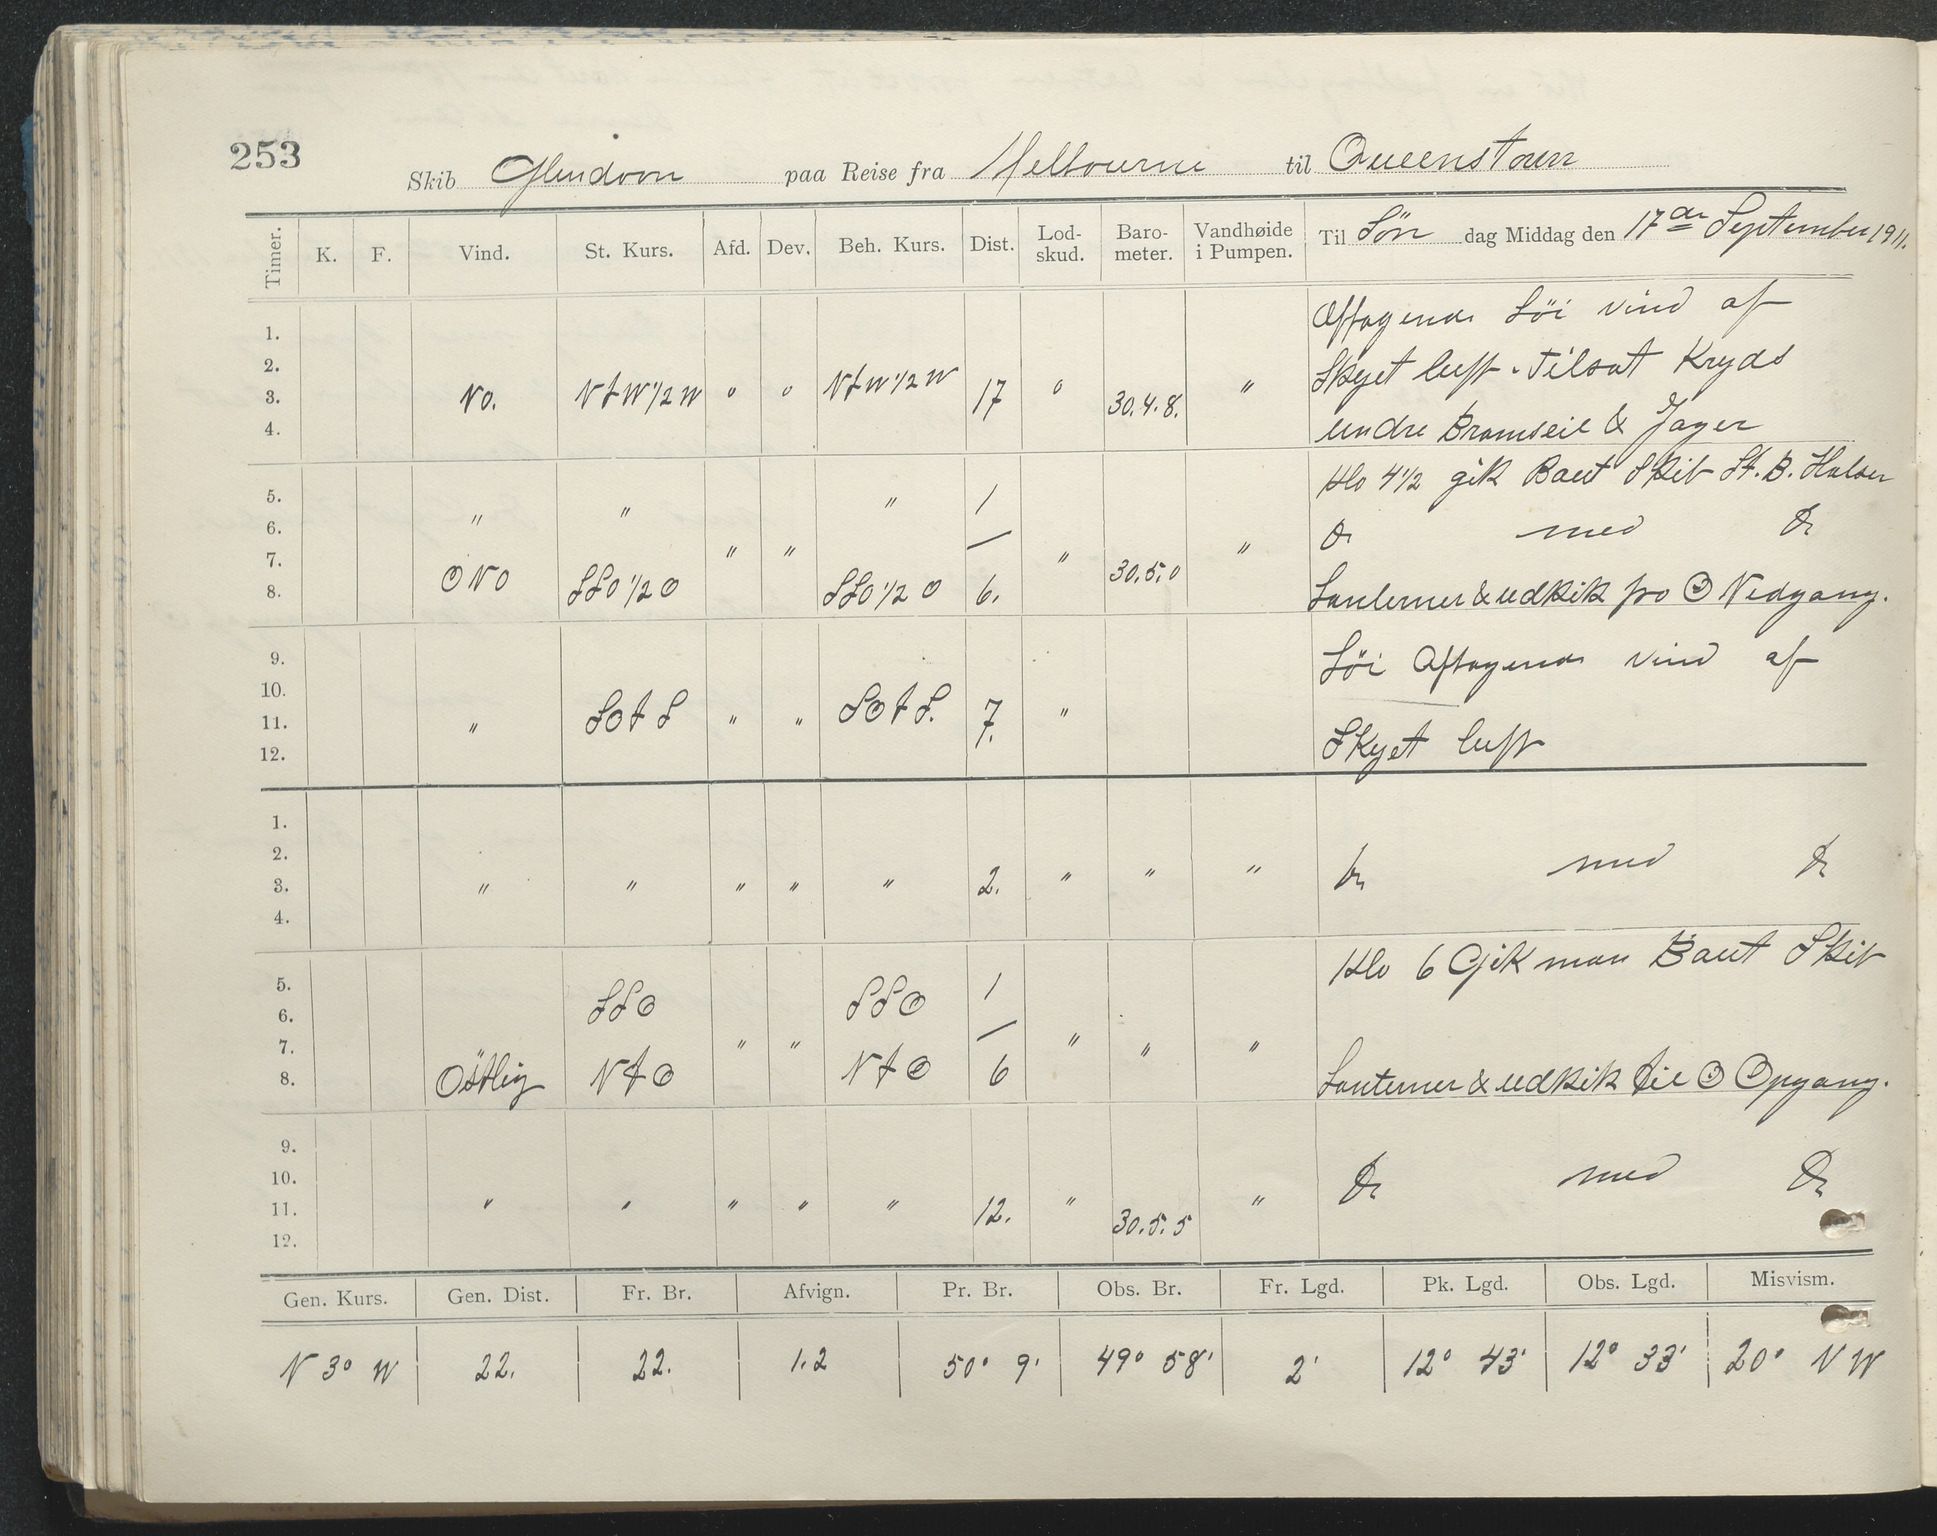 253
Skib Glendoon paa Reise fra Melbourne til Queenstown
Timer. K. F. Vind. St. Kurs. Afd. Dev. Beh. Kurs. Dist. Lod-skud. Baro-meter. Vandhøide i Pumpen. Til Søn dag Middag den 17de September 1911.
1. Aftagende Søi vind af
2. Skyet luft. Tilsat Kryds
3. No. NtW1/2W " " NtW1/2W 17 " 30.4.8. "
4. undre Bramseil & Jager
5. " " " 1 Klo 4 1/2 gik Baut Skib St. B. Halser
6. Do med Do
7. " " — " 30.5.0 "
8. ONO SSO1/2O SSO1/2O 6. Lanterner & udkik fra ☉ Nedgang.
9. Søi Aftagende vind af
10.
11. " SOtS " " SOtS. 7. "
12. Skyet luft
1.
2.
3. " " " " " 2. " " " Do med Do
4.
5. Klo 6 Gik man Baut Skib
6. SSO SSO 1
7. " " — " " "
8. Østlig NtO NtO 6 Lanterner & udkik til ☉ Opgang.
9.
10. Do med Do
11. " " " " " 12. " 30.5.5 "
12.
Gen. Kurs. Gen. Dist. Fr. Br. Afvign. Pr. Br. Obs. Br. Fr. Lgd. Pk. Lgd. Obs. Lgd. Misvism.
N 3° W 22. 22. 1.2 50° 9' 49° 58' 2' 12° 43' 12° 33' 20° NW